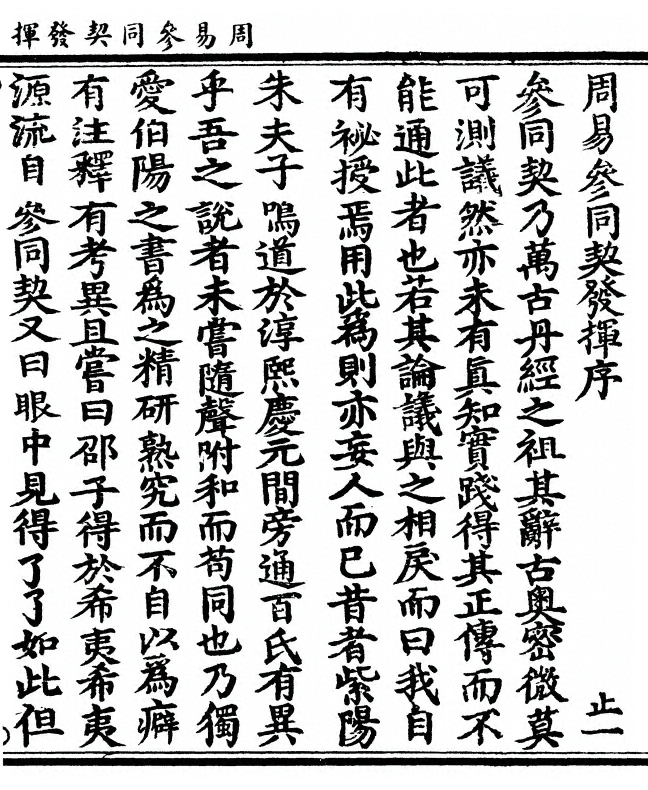 周易參同契發揮
周易參同契發揮序 止一
參同契乃萬古丹經之祖其辭古奧密微莫
可測議然亦未有眞知實踐得其正傳而不
能通此者也若其論議與之相戾而曰我自
有祕授焉用此爲則亦妄人而已昔者紫陽
朱夫子鳴道於淳熙慶元間旁通百氏有異
乎吾之說者未嘗隨聲附和而苟同也乃獨
愛伯陽之書爲之精研熟究而不自以爲癖
有注釋有考異且嘗曰邵子得於希夷希夷
源流自參同契又曰眼中見得了了如此但